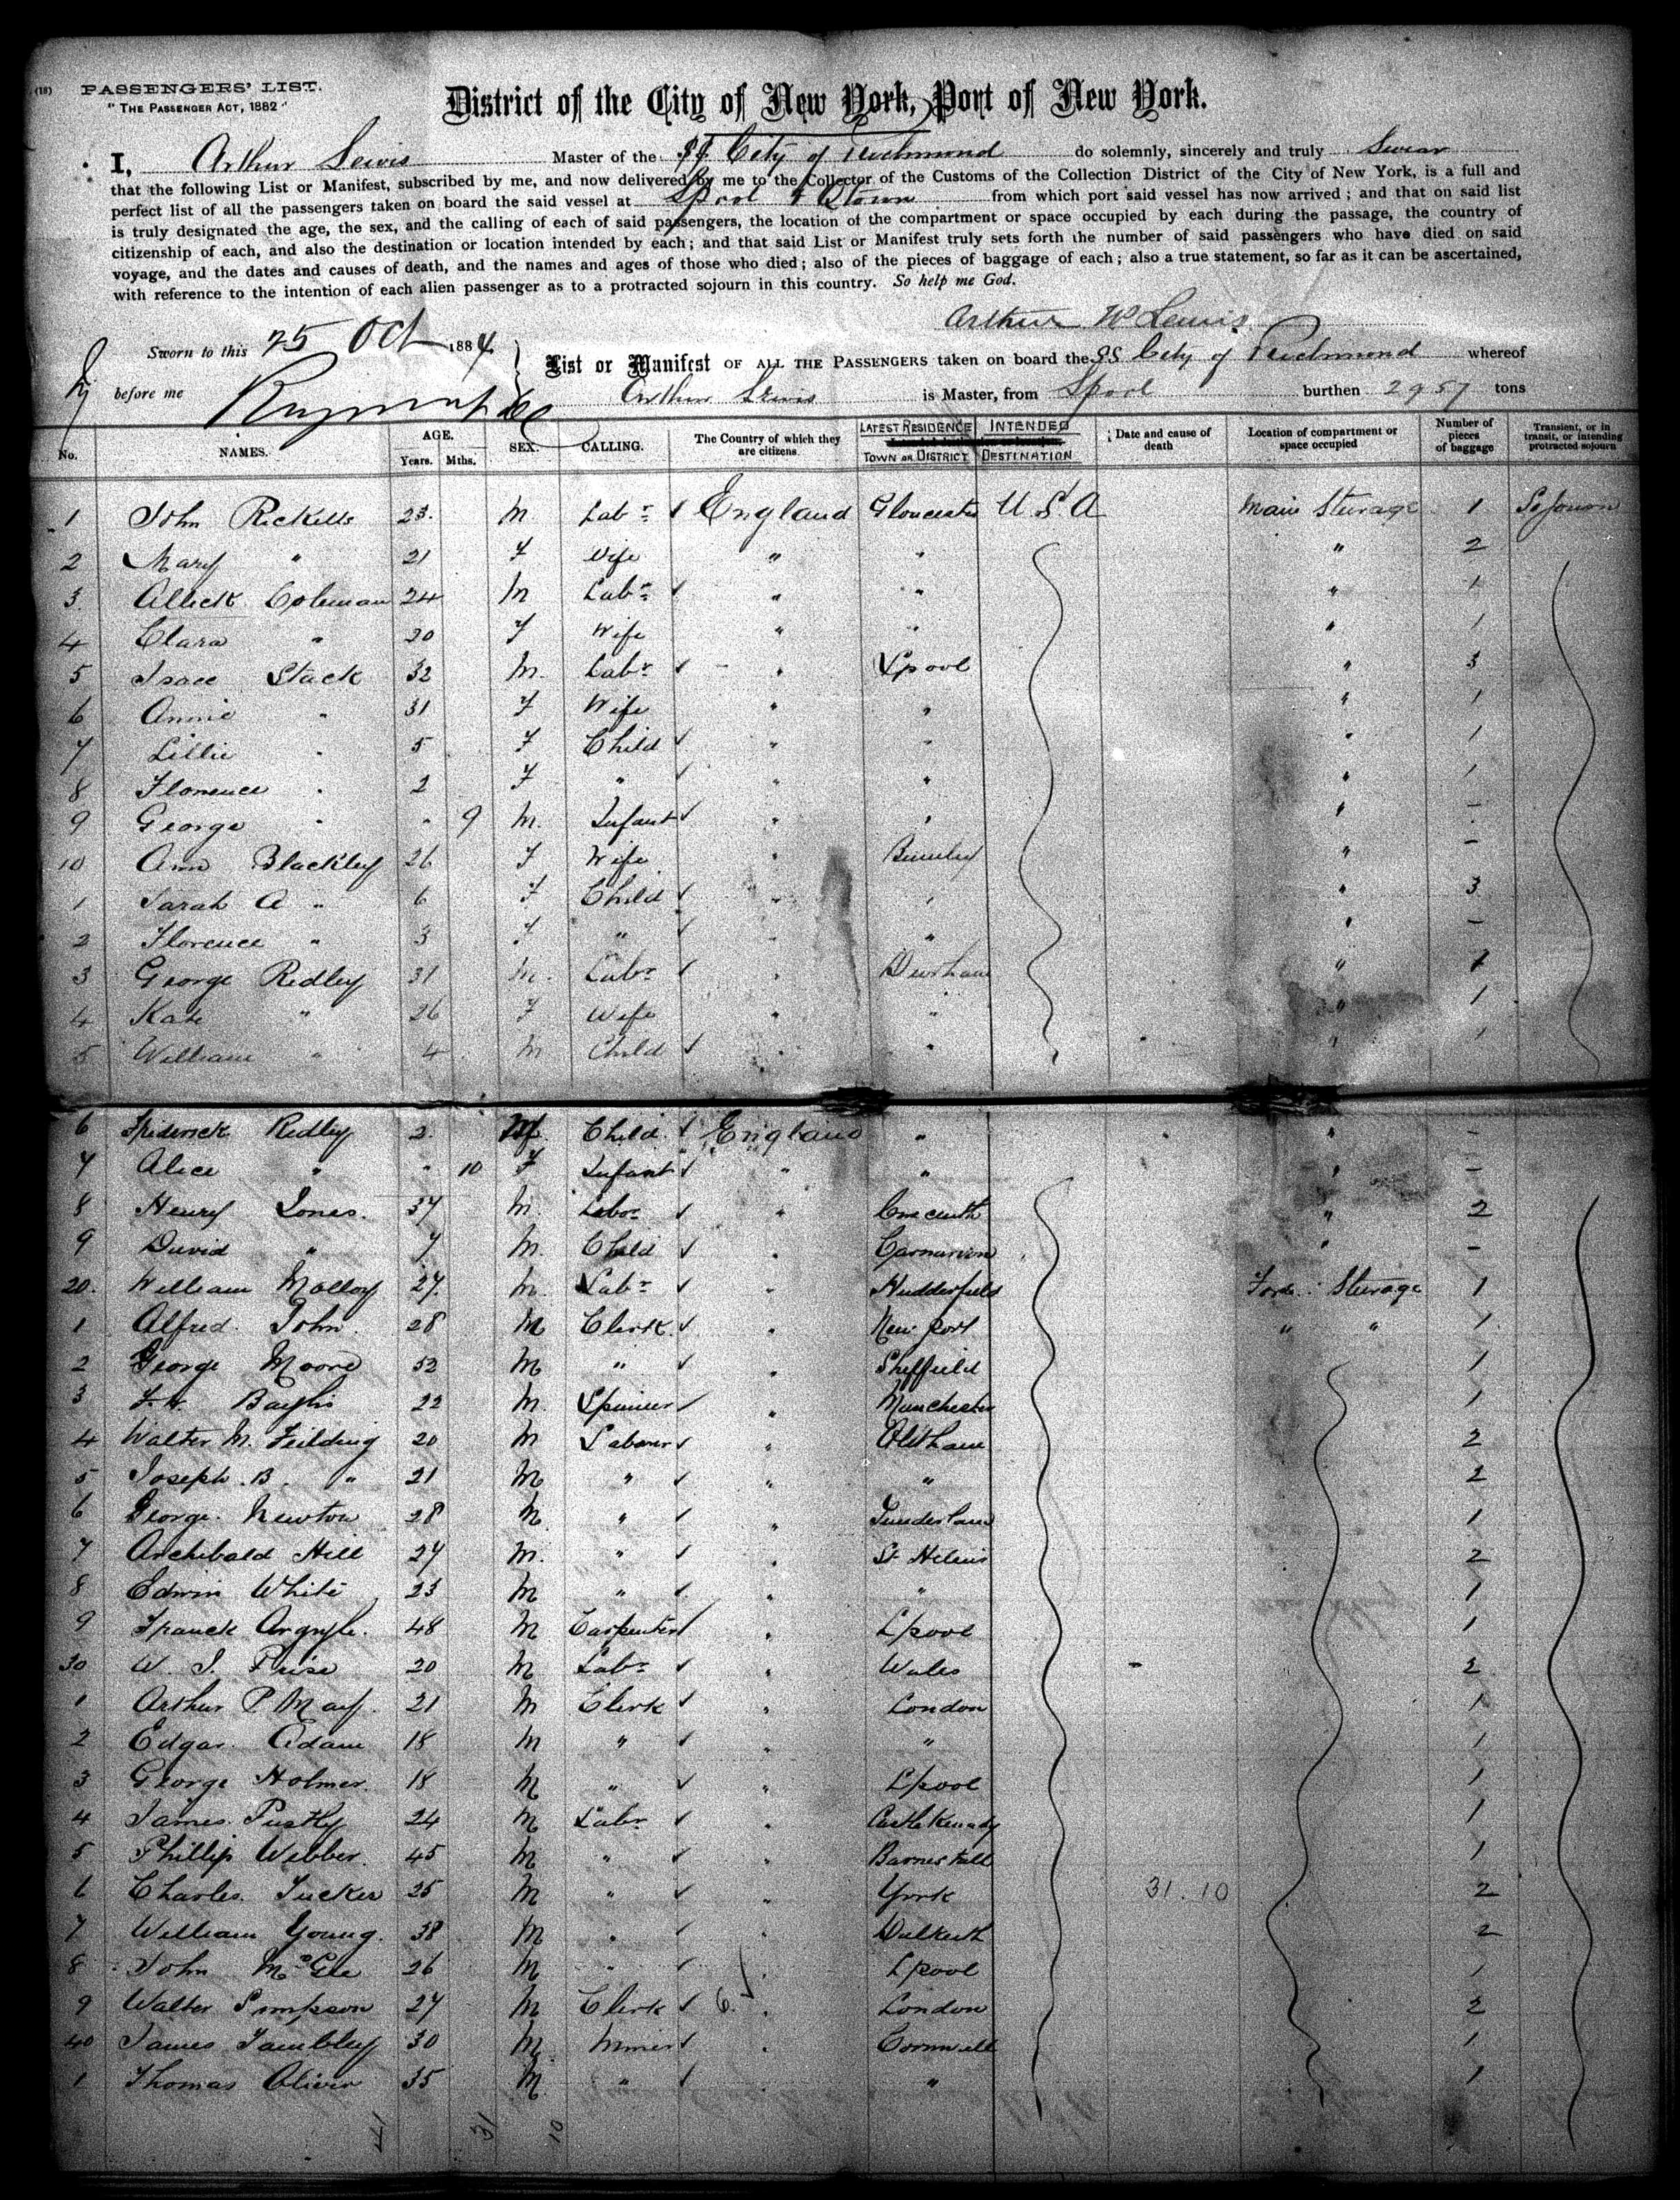 (18) PASSENGERS' LIST.
"THE PASSENGER ACT, 1882"
District of the City of New York, Port of New York.
I, Arthur Lewis Master of the SS City of Richmond do solemnly, sincerely and truly Swear
that the following List or Manifest, subscribed by me, and now delivered by me to the Collector of the Customs of the Collection District of the City of New York, is a full and
perfect list of all the passengers taken on board the said vessel at Lpool & Qtown from which port said vessel has now arrived; and that on said list
is truly designated the age, the sex, and the calling of each of said passengers, the location of the compartment or space occupied by each during the passage, the country of
citizenship of each, and also the destination or location intended by each; and that said List or Manifest truly sets forth the number of said passengers who have died on said
voyage, and the dates and causes of death, and the names and ages of those who died; also of the pieces of baggage of each; also a true statement, so far as it can be ascertained,
with reference to the intention of each alien passenger as to a protracted sojourn in this country. So help me God.
Arthur W Lewis
Sworn to this 25 Oct 1884
before me
List or Manifest OF ALL THE PASSENGERS taken on board the SS City of Richmond whereof
Arthur Lewis is Master, from Lpool burthen 2957 tons
No. NAMES. AGE. Years. Mths. SEX. CALLING. The Country of which they are citizens LATEST RESIDENCE TOWN OR DISTRICT INTENDED DESTINATION Date and cause of death Location of compartment or space occupied Number of pieces of baggage Transient, or in transit, or intending protracted sojourn
1 John Ricketts 23 M Labr England Gloucester U S A Main Sturage 1 Sojourn
2 Mary " 21 F Wife " " " 2
3 Alleck Coleman 24 M Labr " " " 1
4 Clara " 20 F Wife " " " 1
5 Isaac Stack 32 M Labr " Lpool " 3
6 Annie " 31 F Wife " " " 1
7 Lillie " 5 F Child " " " 1
8 Florence " 2 F " " " " 1
9 George " " 9 M Infant " " " -
10 Ann Blackley 26 F Wife " " -
1 Sarah A " 6 F Child " " " 3
2 Florence " 3 F " " " " -
3 George Ridley 31 M Labr " Durham " 1
4 Kate " 26 F Wife " " " 1
5 William " 4 M Child " " " 1
6 Frederick Ridley 2 M Child England " " -
7 Alice " " 10 F Infant " " " -
8 Henry Jones 37 M Labor " " 2
9 David " 7 M Child " Carnarvon " -
20 William Malloy 27 M Labr " Hudderfield Ford Sturage 1
1 Alfred John 28 M Clerk " New port " " 1
2 George Moore 52 M " " Sheffield 1
3 22 M Spinner " Manchester 1
4 Walter M. Feilding 20 M Laborer " Oldham 2
5 Joseph B. " 21 M " " " 2
6 George Newton 28 M " " Sunderland 1
7 Archibald Hill 27 M " " St Helens 2
8 Edwin White 23 M " " " 1
9 Franck Argyle 48 M Carpenter " Lpool 1
30 W. J. Prise 20 M Labr " Wales 2
1 Arthur P May 21 M Clerk " London 1
2 Edgar Adam 18 M " " " 1
3 George Holmes 18 M " " Lpool 1
4 James 24 M Labr " Castle Kenedy 1
5 Phillip Webber 45 M " " 1
6 Charles Tucker 25 M " " York 31.10 2
7 William Young 38 M " " Dalkeith 2
8 John McGee 26 M " " Lpool 1
9 Walter Simpson 27 M Clerk 6 " London 2
40 James Tambley 30 M Miner " Cornwell 1
1 Thomas Oliver 35 M " " " 1
41 31 10